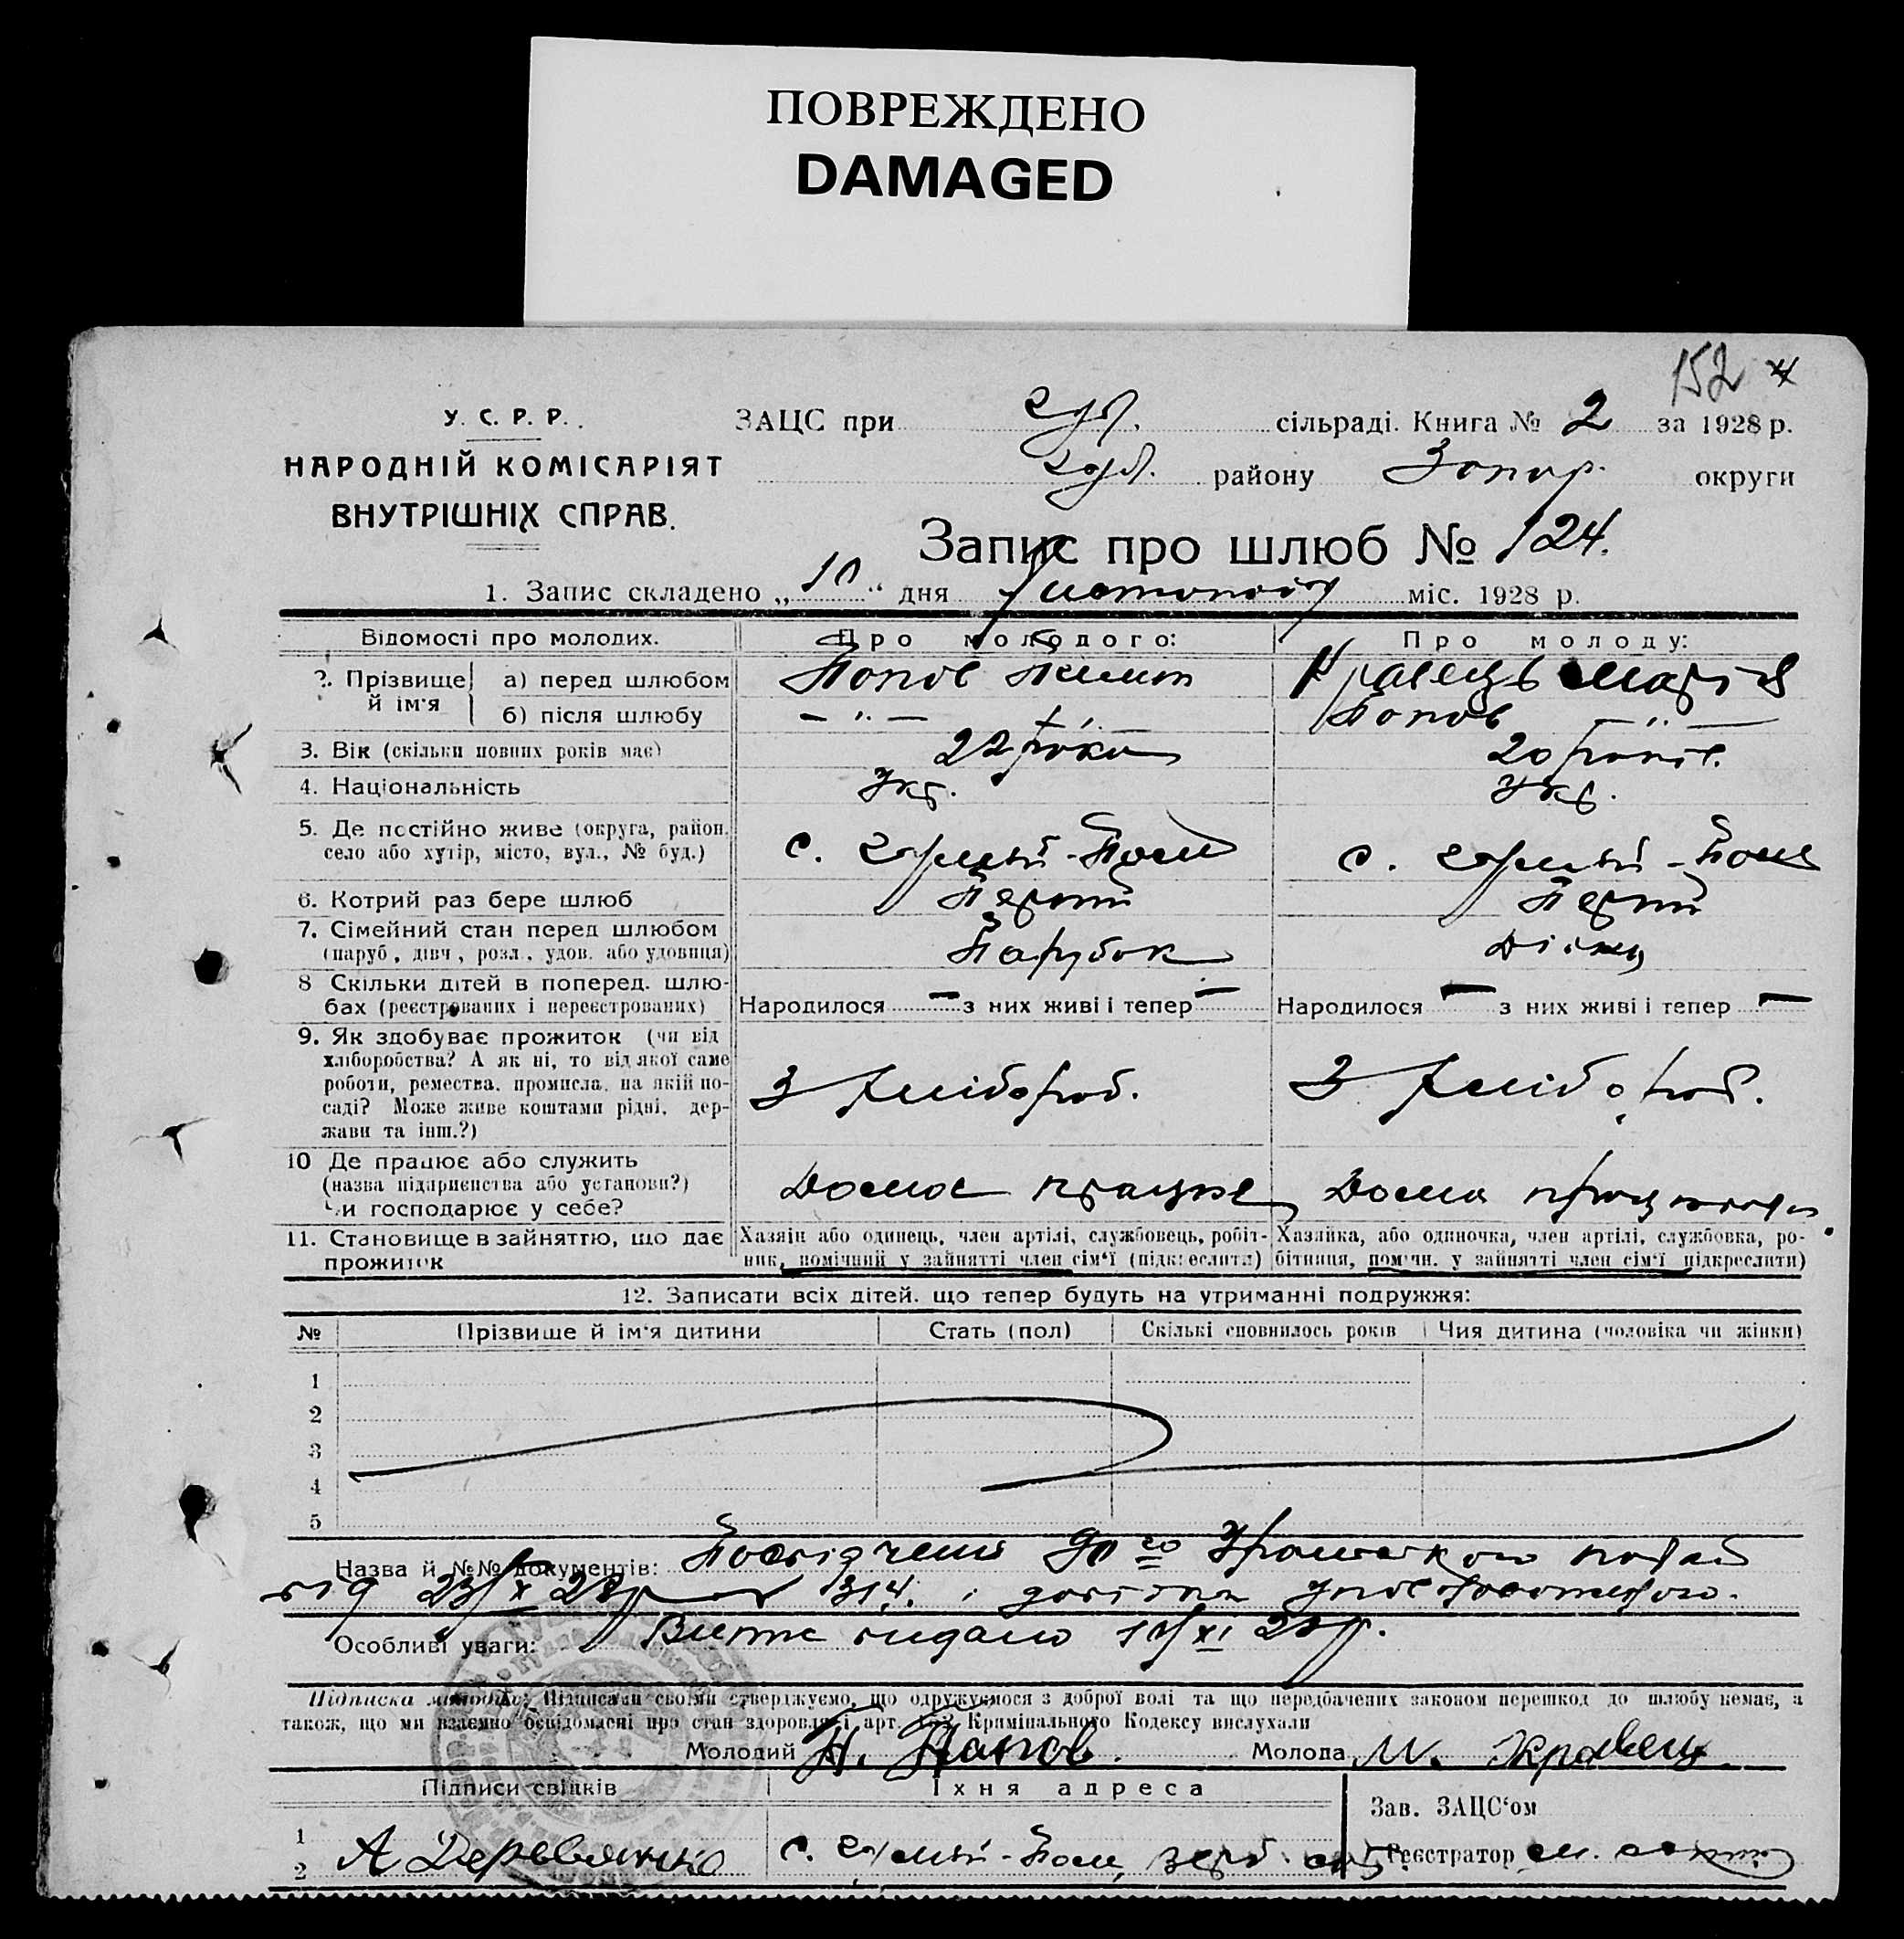 ПОВРЕЖДЕНО
DAMAGED
152
У. С. Р. Р.
НАРОДНІЙ КОМІСАРІЯТ
ВНУТРІШНІХ СПРАВ.
ЗАЦС при сільраді. Книга № 2 за 1928 р.
району Запор. округи
Запис про шлюб № 124.
1. Запис складено „10“ дня Листопаду міс. 1928 р.
Відомості про молодих. Про молодого: Про молоду:
2. Прізвище й ім'я а) перед шлюбом Попов Кравець Марія
б) після шлюбу — " — Попов — " —
3. Вік (скільки повних років має) 22 роки 20 років.
4. Національність Укр. Укр.
5. Де постійно живе (округа, район, село або хутір, місто, вул., № буд.) с. Гуляй-Поле с. Гуляй-Поле
6. Котрий раз бере шлюб Перший Перший
7. Сімейний стан перед шлюбом (паруб, дівч, розл., удов. або удовиця) Парубок Дівка
8 Скільки дітей в поперед. шлюбах (реєстрованих і нереєстрованих) Народилося — з них живі і тепер — Народилося — з них живі і тепер —
9. Як здобуває прожиток (чи від хліборобства? А як ні, то від якої саме роботи, ремества, промисла, на якій посаді? Може живе коштами рідні, держави та інш.?) З хлібороб. З хлібороб.
10 Де працює або служить (назва підприємства або установи?) Чи господарює у себе? Дома працює Дома
11. Становище в зайняттю, що дає прожиток Хазяін або одинець, член артілі, службовець, робітник, помічний у зайнятті член сім'ї (підкреслити) Хазяйка, або одиночка, член артілі, службовка, робітниця, помічн. у зайнятті член сім'ї підкреслити)
12. Записати всіх дітей, що тепер будуть на утриманні подружжя:
№ Прізвище й ім'я дитини Стать (пол) Скількі сповнилось років Чия дитина (чоловіка чи жінки)
1
2
3
4
5
Назва й №№ документів: Посвідчення
від 23/X 28р 314. і
Особливі уваги: Витяг видано 10/XI 28р.
Підписка молодих: Підписами своїми стверджуємо, що одружуємося з доброї волі та що передбачених законом перешкод до шлюбу немає, а
також, що ми взаємно освідомлені про стан здоровля і арт. Крамінального Кодексу вислухали
Молодий П. Попов. Молода М. Кравець.
Підписи свідків Їхня адреса Зав. ЗАЦС'ом
1
2 А Деревянко с. Гуляй-Поле, Реєстратор